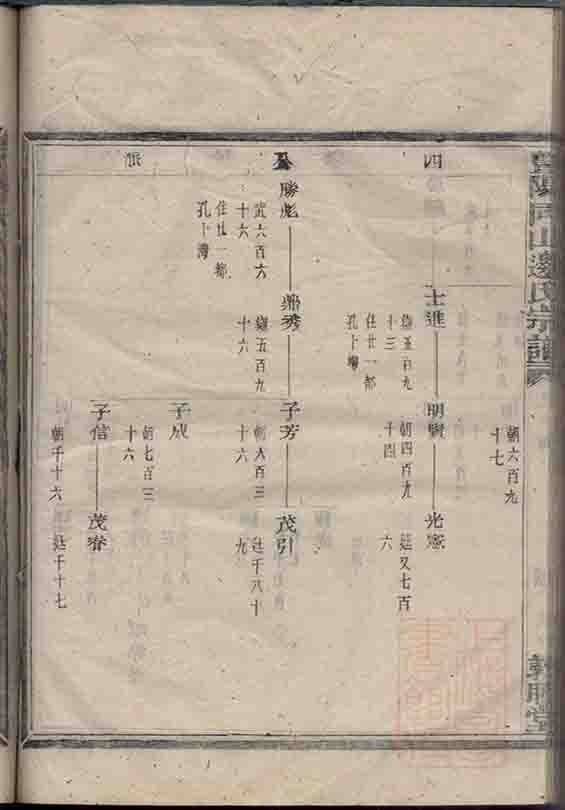 同山邊氏宗譜
敦睦堂
四
公
派
朝六百九
十七
士進
十三
住廿一都
孔卜灣
明賢
朝四百九
十四
光憲
廷又七百
六
勝彪
武六百六
十六
住廿一都
孔卜灣
鼎秀
五百九
十六
子芳
朝八百三
十六
茂引
廷千八十
九
子成
朝七百三
十六
子信
朝千十六
茂眷
廷千十七